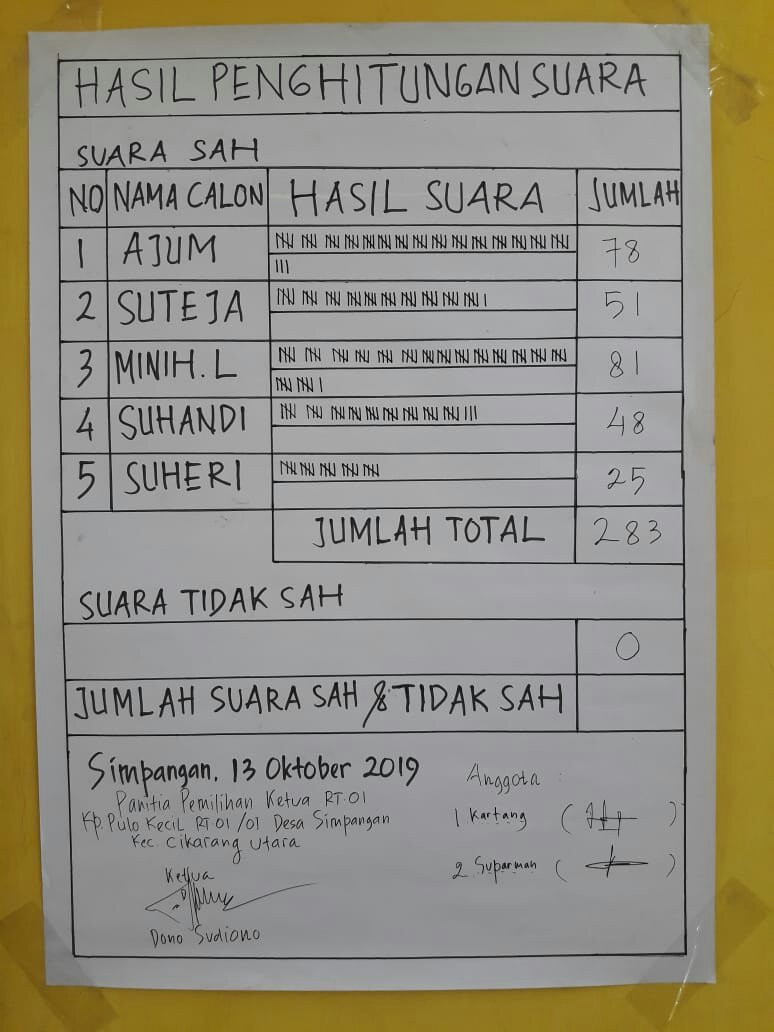 HASIL PENGHITUNGAN SUARA
SUARA SAH
NO NAMA CALON HASIL SUARA JUMLAH
1 AJUM 78
2 SUTEJA 51
3 MINIH.L 81
4 SUHANDI 48
5 SUHERI 25
JUMLAH TOTAL 283
SUARA TIDAK SAH
0
JUMLAH SUARA SAH & TIDAK SAH
Simpangan, 13 Oktober 2019
Panitia Pemilihan Ketua RT.01
Kp. Pulo Kecil RT.01/01 Desa Simpangan
Kec. Cikarang Utara
Ketua
Dono Sudiono
Anggota :
1 Kartang ( )
2 Suparman ( )